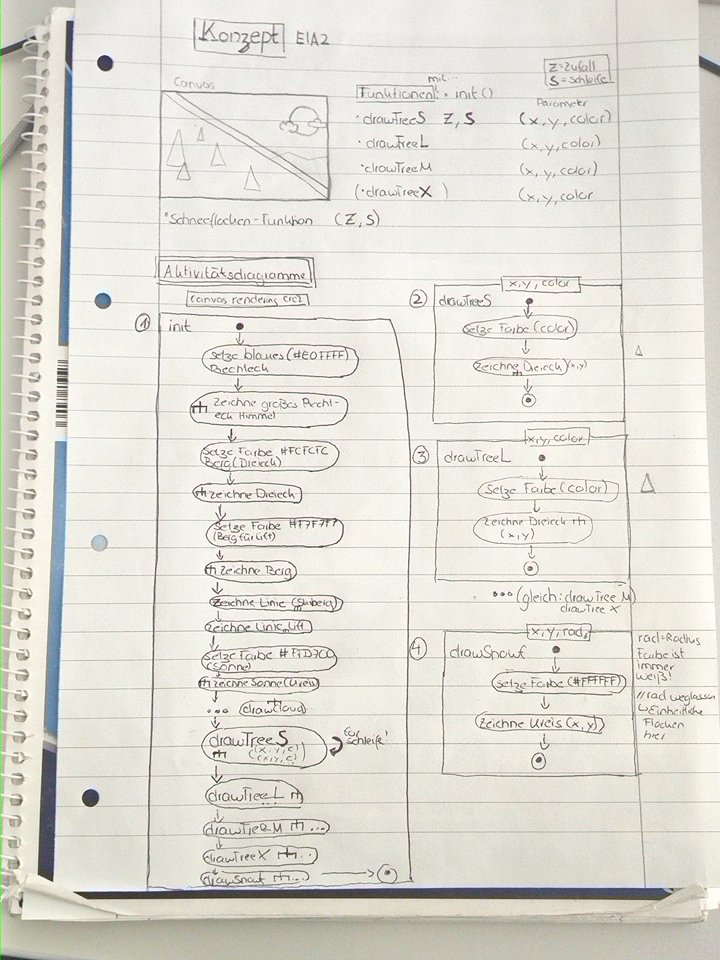 Konzept EIA2
Z=Zufall
S=Schleife
Canvas
mit...
Funktionen: • init()
Parameter
• drawTreeS Z, S (x, y, color)
• drawTreeL (x, y, color)
• drawTreeM (x, y, color)
(• drawTreeX ) (x, y, color
*Schneeflocken-Funktion (Z, S)
Aktivitätsdiagramme
canvas rendering crc2
1 init
Setze blaues (#E0FFFF)
Rechteck
Zeichne großes Recht-
eck Himmel
Setze Farbe #FCFCFC
Berg (Dreieck)
zeichne Dreieck
Setze Farbe #F7F7F7
(Berg für Lift)
zeichne Berg
zeichne Linie (Skiberg)
zeichne Linie Lift
setze Farbe #FFD700
(Sonne)
zeichne Sonne (Kreis)
... drawCloud
drawTreeS
(x, y, c)
(x, y, c)
für
schleife!
drawTreeL ...
drawTreeM ...
drawTreeX ...
drawSnowf ...
2 x, y, color
drawTreeS
Setze Farbe (color)
Zeichne Dreieck (x,y)
3 x, y, color
drawTreeL
Setze Farbe (color)
Zeichne Dreieck
(x, y)
... (gleich: drawTree M)
drawTree X
4 x, y, rad,
drawSnowf
Setze Farbe (#FFFFFF)
zeichne Kreis (x, y)
rad=Radius
Farbe ist
immer
weiß!
//rad weglassen
↳Einheitliche
Flocken
hier